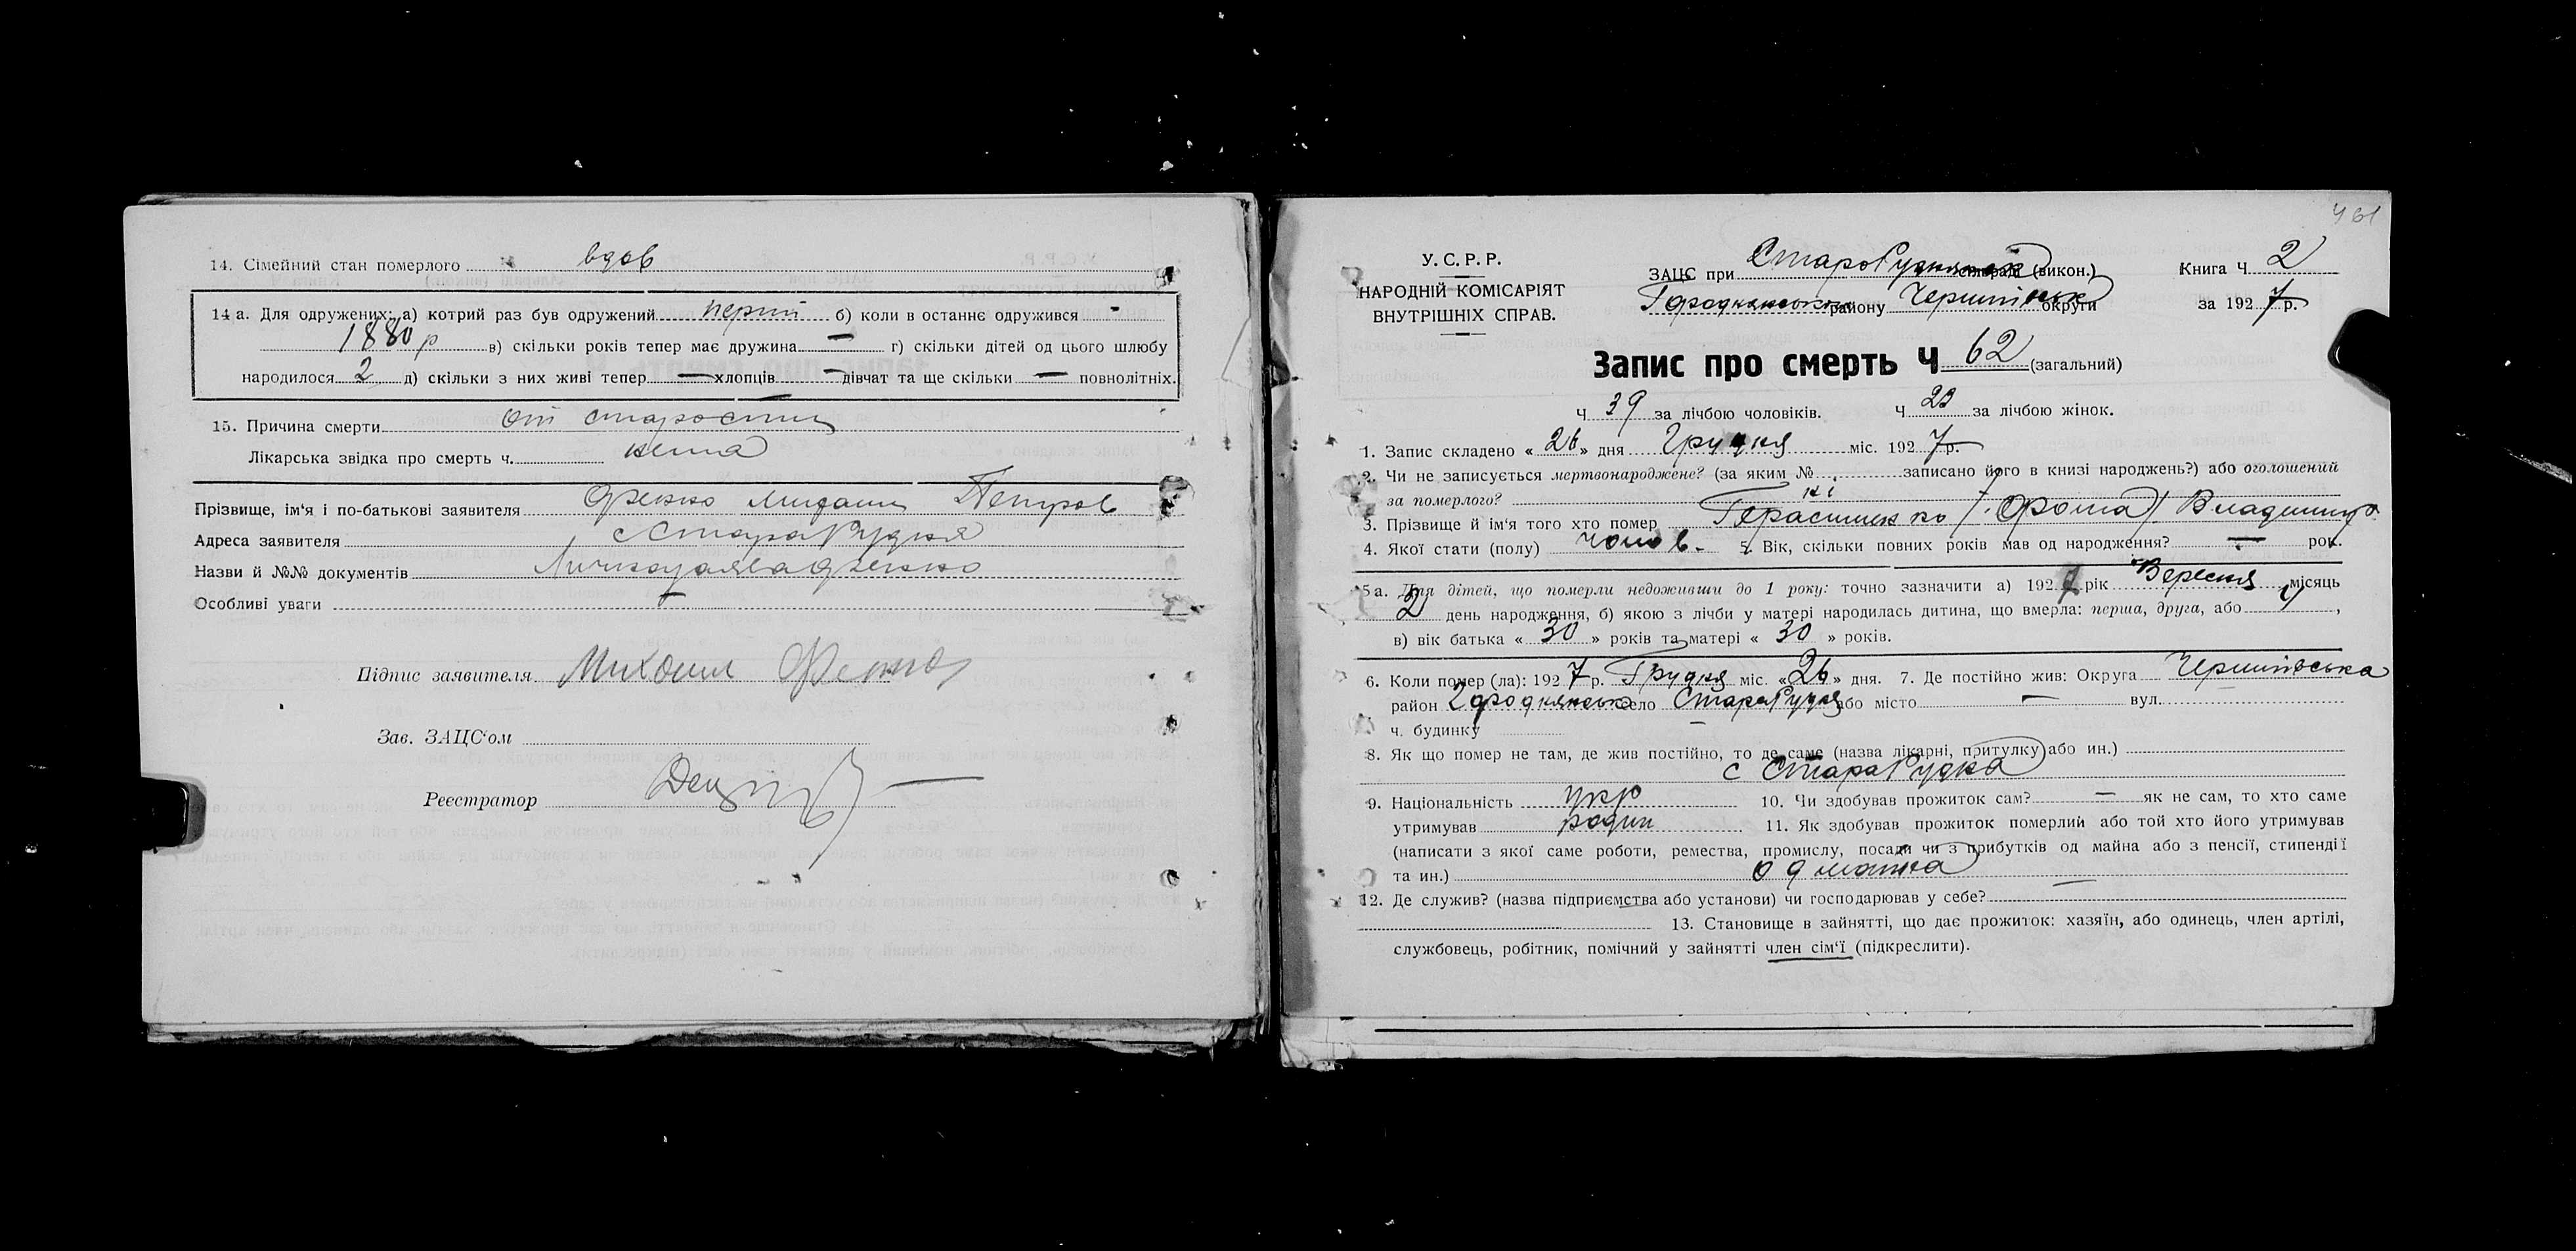 14. Сімейний стан померлого вдов
14 а. Для одружених: а) котрий раз був одружений перший б) коли в останнє одружився -
1880 р в) скільки років тепер має дружина — г) скільки дітей од цього шлюбу
народилося 2 д) скільки з них живі тепер — хлопців — дівчат та ще скільки — повнолітніх.
15. Причина смерти от старости
Лікарська звідка про смерть ч. нема
Прізвище, ім'я і по-батькові заявителя Петров
Адреса заявителя с Стара Рудня
Назви й №№ документів
Особливі уваги —
Підпис заявителя Михаил
Зав. ЗАЦС'ом
Реєстратор
461
У. С. Р. Р.
НАРОДНІЙ КОМІСАРІЯТ
ВНУТРІШНІХ СПРАВ.
ЗАЦС при сільраді (викон.)
Городнянськ району Чернигівськ округи
Книга Ч 2
за 1927 р.
Запис про смерть Ч 62 (загальний)
Ч 39 за лічбою чоловіків. Ч 23 за лічбою жінок.
1. Запис складено « 26 » дня Грудня міс. 1927 р.
2. Чи не записується мертвонароджене? (за яким № записано його в книзі народжень?) або оголошений
за померлого? ні
3. Прізвище й ім'я того хто помер Герасименко /Фома/ Владимир
4. Якої стати (полу) чолов. 5. Вік, скільки повних років мав од народження? — рок.
5 а. Для дітей, що померли недоживши до 1 року: точно зазначити а) 1927 рік Вересня місяць
2 день народження, б) якою з лічби у матері народилась дитина, що вмерла: перша, друга, або ,
в) вік батька « 30 » років та матері « 30 » років.
6. Коли помер (ла): 1927 р. Грудня міс. « 26 » дня. 7. Де постійно жив: Округа Чернигівська
район Городнянськ село Стара Рудня або місто — вул.
ч. будинку
8. Як що помер не там, де жив постійно, то де саме (назва лікарні, притулку або ин.)
с Стара Рудня
9. Національність укр 10. Чи здобував прожиток сам? — як не сам, то хто саме
утримував родич 11. Як здобував прожиток померлий або той хто його утримував
(написати з якої саме роботи, ремества, промислу, посади чи з прибутків од майна або з пенсії, стипендії
та ин.)
12. Де служив? (назва підприємства або установи) чи господарював у себе? —
13. Становище в зайнятті, що дає прожиток: хазяїн, або одинець, член артілі,
службовець, робітник, помічний у зайнятті член сім'ї (підкреслити).